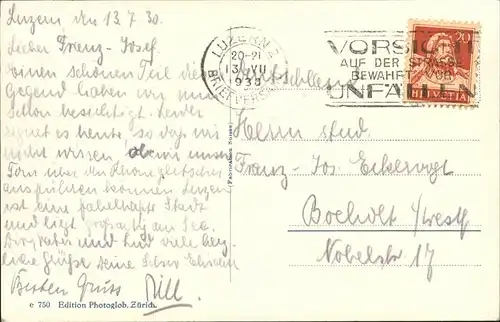 Luzern den 13.7.30.
Lieber Franz-Josef.
Einen schönen Teil dieser
Gegend haben wir nun
schon besichtigt. Leider
regnet es heute, so dass wir
nicht wissen ob wir unsere
Tour über den Rhonegletscher
ausführen können. Luzern
ist eine fabelhafte Stadt
und liegt großartig am See.
und viele herz-
liche Grüße Deine
Besten Gruss Will
LUZERN 2
20-21
13.VII
BRIEFVERSAND
VORSICHT
AUF DER STRASSE
BEWAHRT VOR
UNFÄLLEN
20
HELVETIA
Deutschland
Herrn stud.
Franz-Jos
Bocholt /Westf
Nobelstr 17
(Fabrication Suisse)
e 750 Edition Photoglob, Zürich.